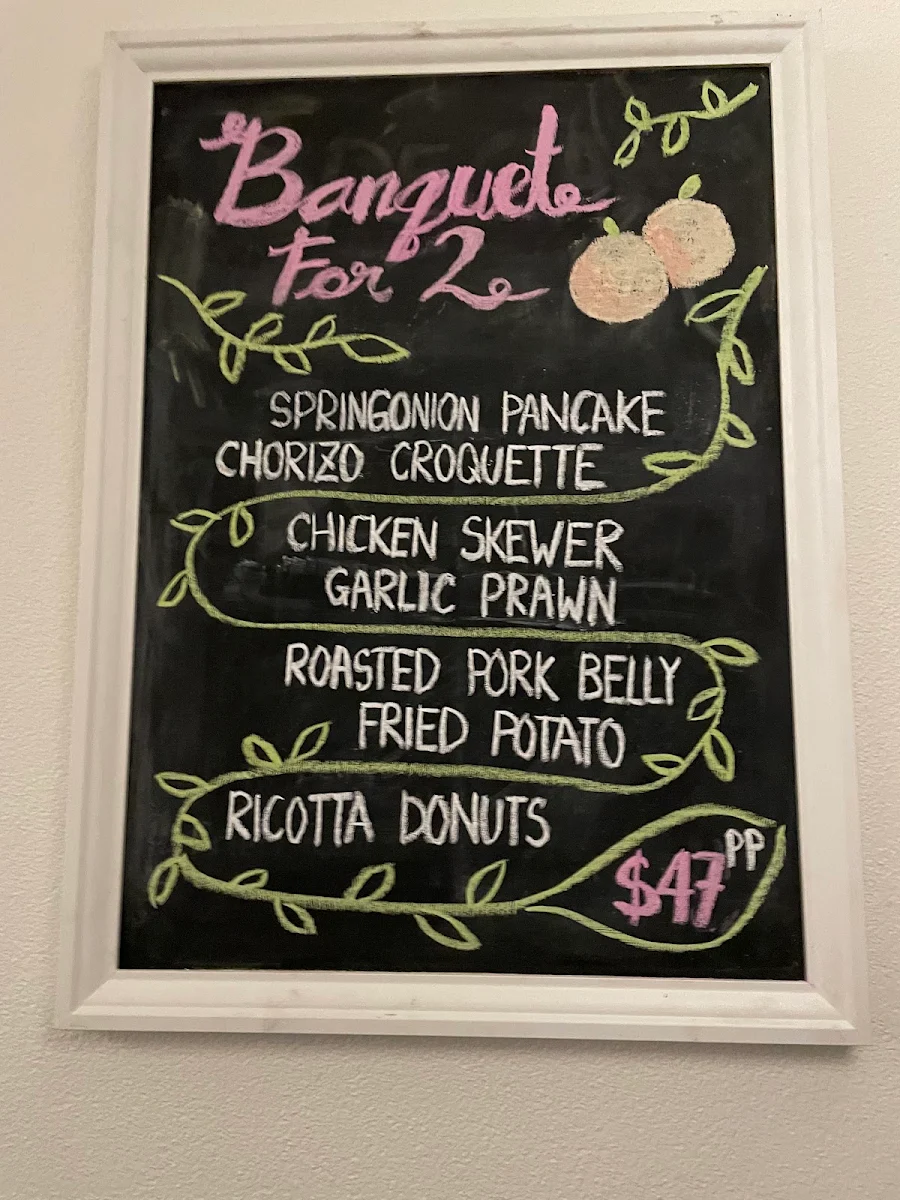 Banquet
For 2
SPRINGONION PANCAKE
CHORIZO CROQUETTE
CHICKEN SKEWER
GARLIC PRAWN
ROASTED PORK BELLY
FRIED POTATO
RICOTTA DONUTS
$47PP